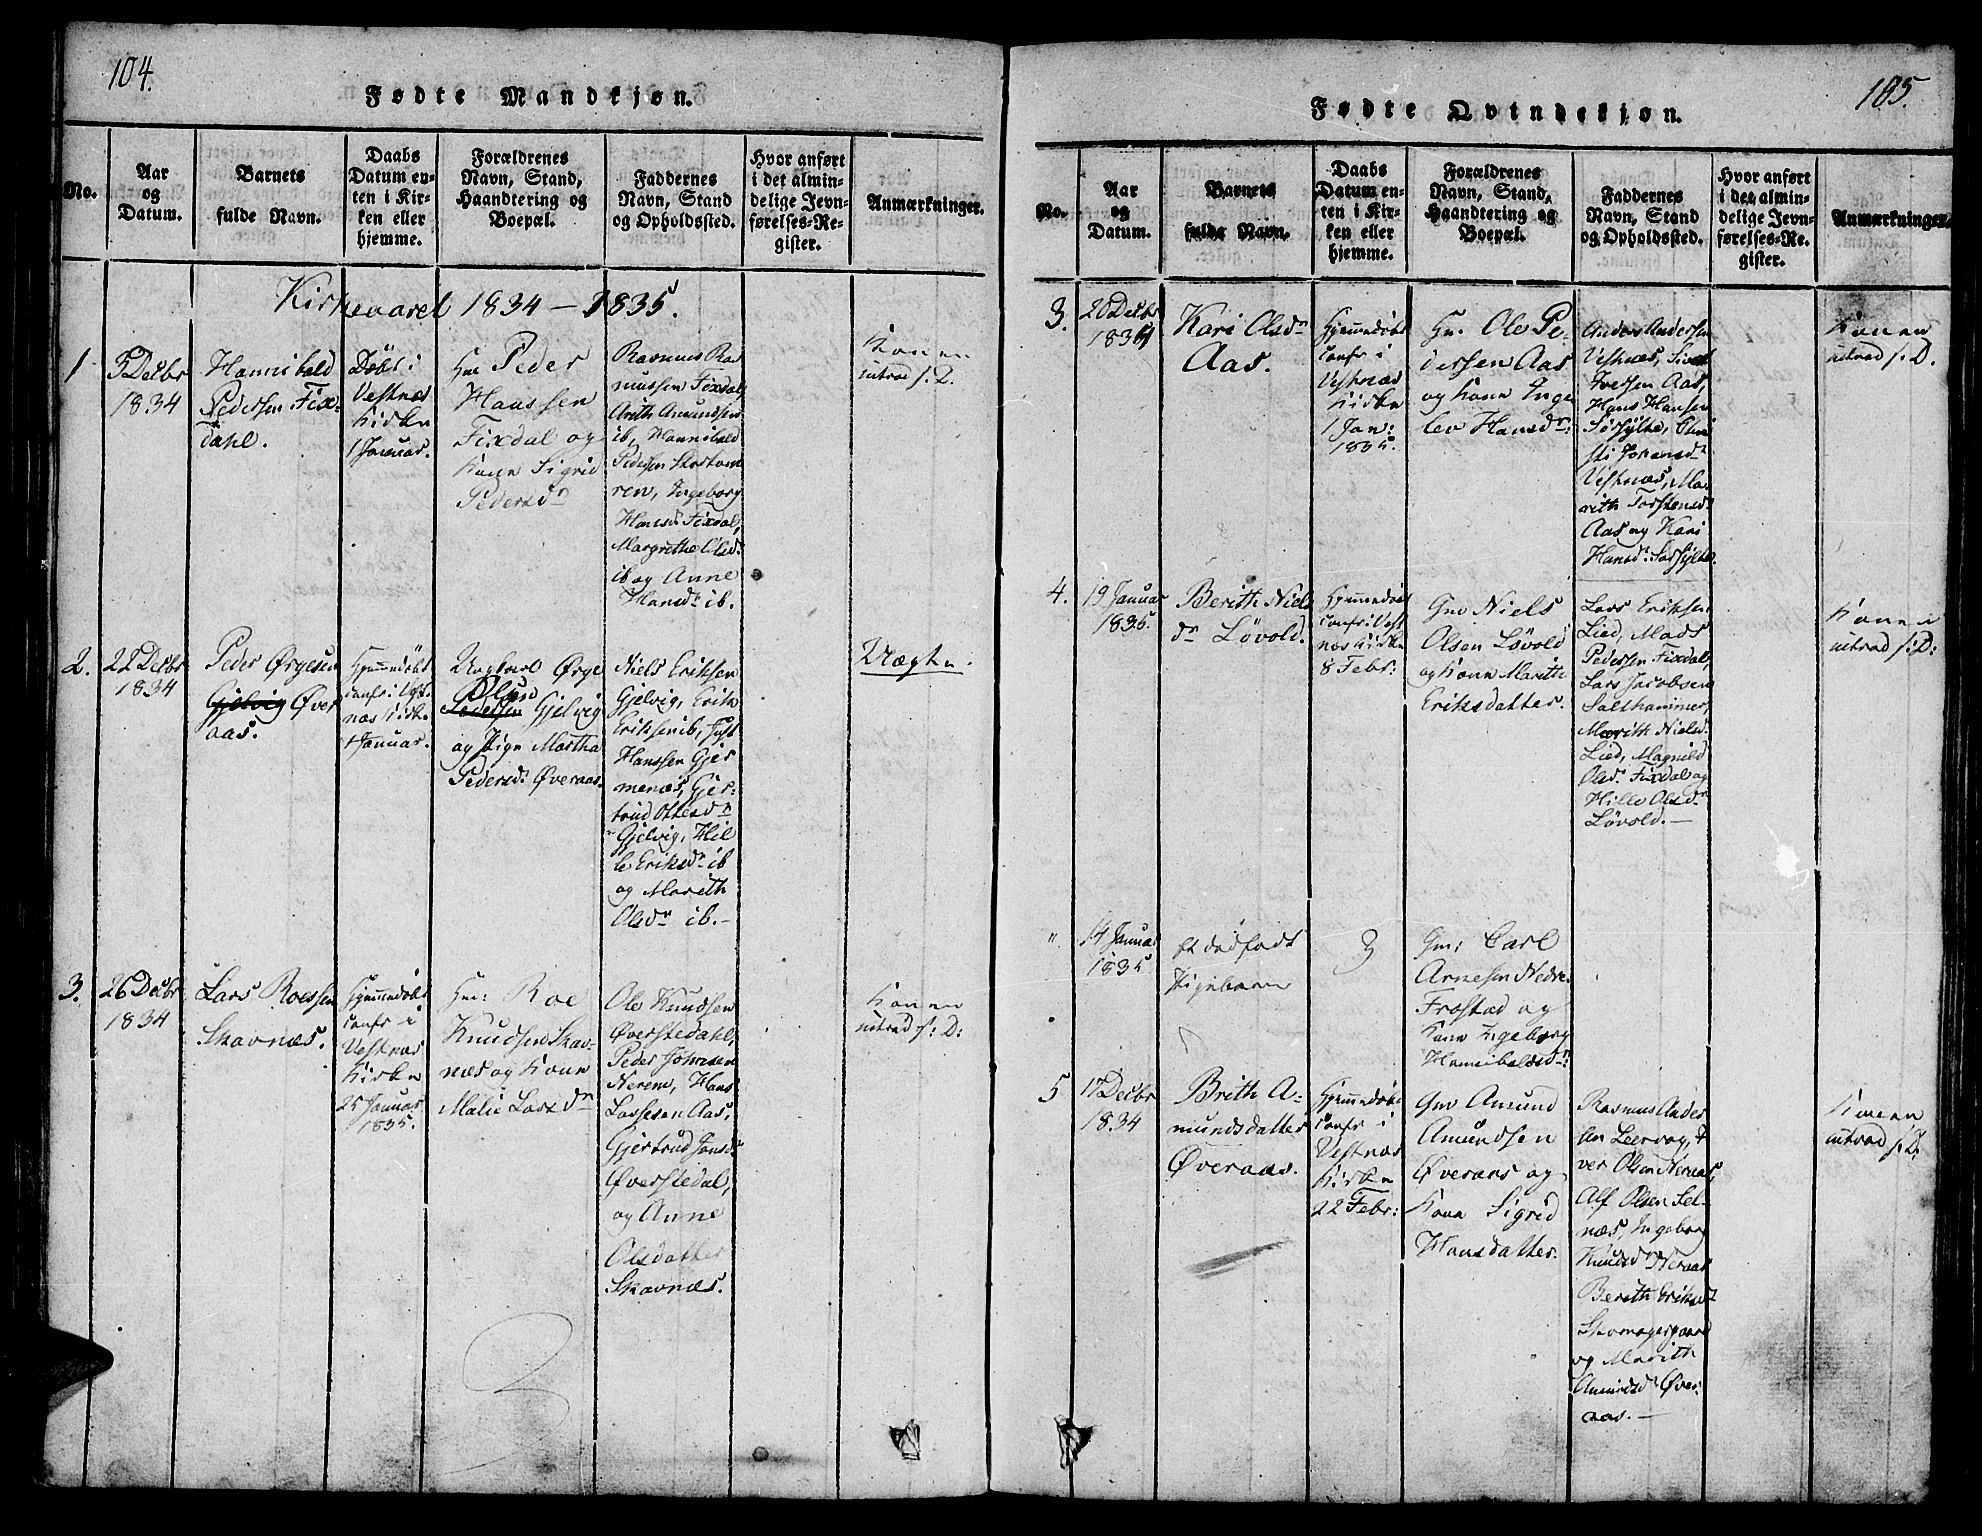 104.
Fødte Mandkjøn.
No.
Aar
og
Datum.
Barnets
fulde Navn.
Daabs
Datum en-
ten i Kir-
ken eller
hjemme.
Forældrenes
Navn, Stand,
Haandtering og
Boepæl.
Faddernes
Navn, Stand
og Opholdssted.
Hvor anført
i det almin-
delige Jevn-
førelses-Re-
gister.
Anmærkninger.
Kirkeaaret 1834 - 1835.
1
5 Decbr
1834
Hannibald
Pedersen Fix-
dahl.
Døbt i
Vestnæs
Kirke
1 Januar.
Peder
Hanssen
Fixdal og
Kone Sigrid
Pedersdr
Rasmus Ras
mussen Fixdal,
Arith Amundsen
ib, Hannibald
Pedersen
ren, Ingeborg
Hansdr Fixdal,
Margrethe Olsdr
ib og Anne
Hansdr ib.
Konen
introd s: D.
2.
22 Decbr
1834
Peder Ørgesen
Gjelvig Øver
aas.
Hjemmedøbt
confr i Vest-
næs Kirke
1 Januar.
Ungkarl Ørge
Olsen
Pedersen Gjelvig
og Pige Martha
Pedersdr Øveraas.
Niels Eriksen
Gjelvig, Erik
Eriksen ib, Just
Hanssen Gjer
menæs, Gjer-
trud Ottesdr
Gjelvig, Hil
le Eriksdr ib
og Marith
Olsdr ib. -
Uægte.
3.
26 Decbr
1834
Lars Roessen
Skavnæs.
Hjemmedøbt
confr i
Vestnæs
Kirke
25 Januar
1835.
Gm: Roe
Knudsen Skav-
næs og Kone
Malie Larsdr
Ole Knudsen
Øverstedahl,
Peder Johnsen
Nerem, Hans
Lassesen Aas,
Gjertrud Jonsdr
Øverstedal,
og Anne
Olsdatter
Skavnæs.
Konen
introd s: D:
105.
Fødte Qvindekjøn.
No.
Aar
og
Datum.
Barnets
fulde Navn.
Daabs
Datum en-
ten i Kir-
ken eller
hjemme.
Forældrenes
Navn, Stand,
Haandtering og
Boepæl.
Faddernes
Navn, Stand
og Opholdssted.
Hvor anført
i det almin-
delige Jevn-
førelses-Re-
gister.
Anmærkninger.
3.
20 Decbr
1834
Kari Olsdr
Aas.
Hjemmedøbt
confr i
Vestnæs
Kirke
1 Jan:
1835.
Gm. Ole Pe-
dersen Aas
og Kone Inge
lev Hansdr:
Anders Andersen
Vestnæs, Sivert
Iversen Aas,
Hans Hansen
Sørsylte,
Johansdr
Vestnæs, Ma
rith Torstensdr
Aas og Kari
Hansdr: Sørsylte.
Konen
introd s: D.
4.
19 Januar
1835.
Berith Niels
dr Løvold.
Hjemmedøbt
confr: Vest
næs Kirke
8 Febr:
Gm Niels
Olsen Løvold
og Kone Marith
Eriksdatter.
Lars Eriksen
Lied, Mads
Pedersen Fixdal,
Lars Jacobsen
Salthammer,
Marith Nielsdr
Lied, Magnild
Olsdr Fixdal og
Hille Olsdr
Løvold. -
Konen
introd s: D:
"
14 Januar
1835
et dødfødt
Pigebarn
Gm: Carl
Arnesen Nedre
Frostad og
Kone Ingeborg
Hannibalsdr:
5
17 Decbr
1834
Brith A-
mundsdatter
Øveraas.
Hjemmedøbt
confr i
Vestnæs
Kirke
22 Febr:
Gm Amund
Amundsen
Øveraas og
Kone Sigrid
Hansdatter.
Rasmus Ander
sen Leervog, I
ver Olsen Neraas,
Alf Olsen Sel-
næs, Ingeborg
Knudsdr Neraas
Berith Eriksdr
Skomagergaard
og Marith
Amundsdr Øver
aas. -
Konen
introd s: D.